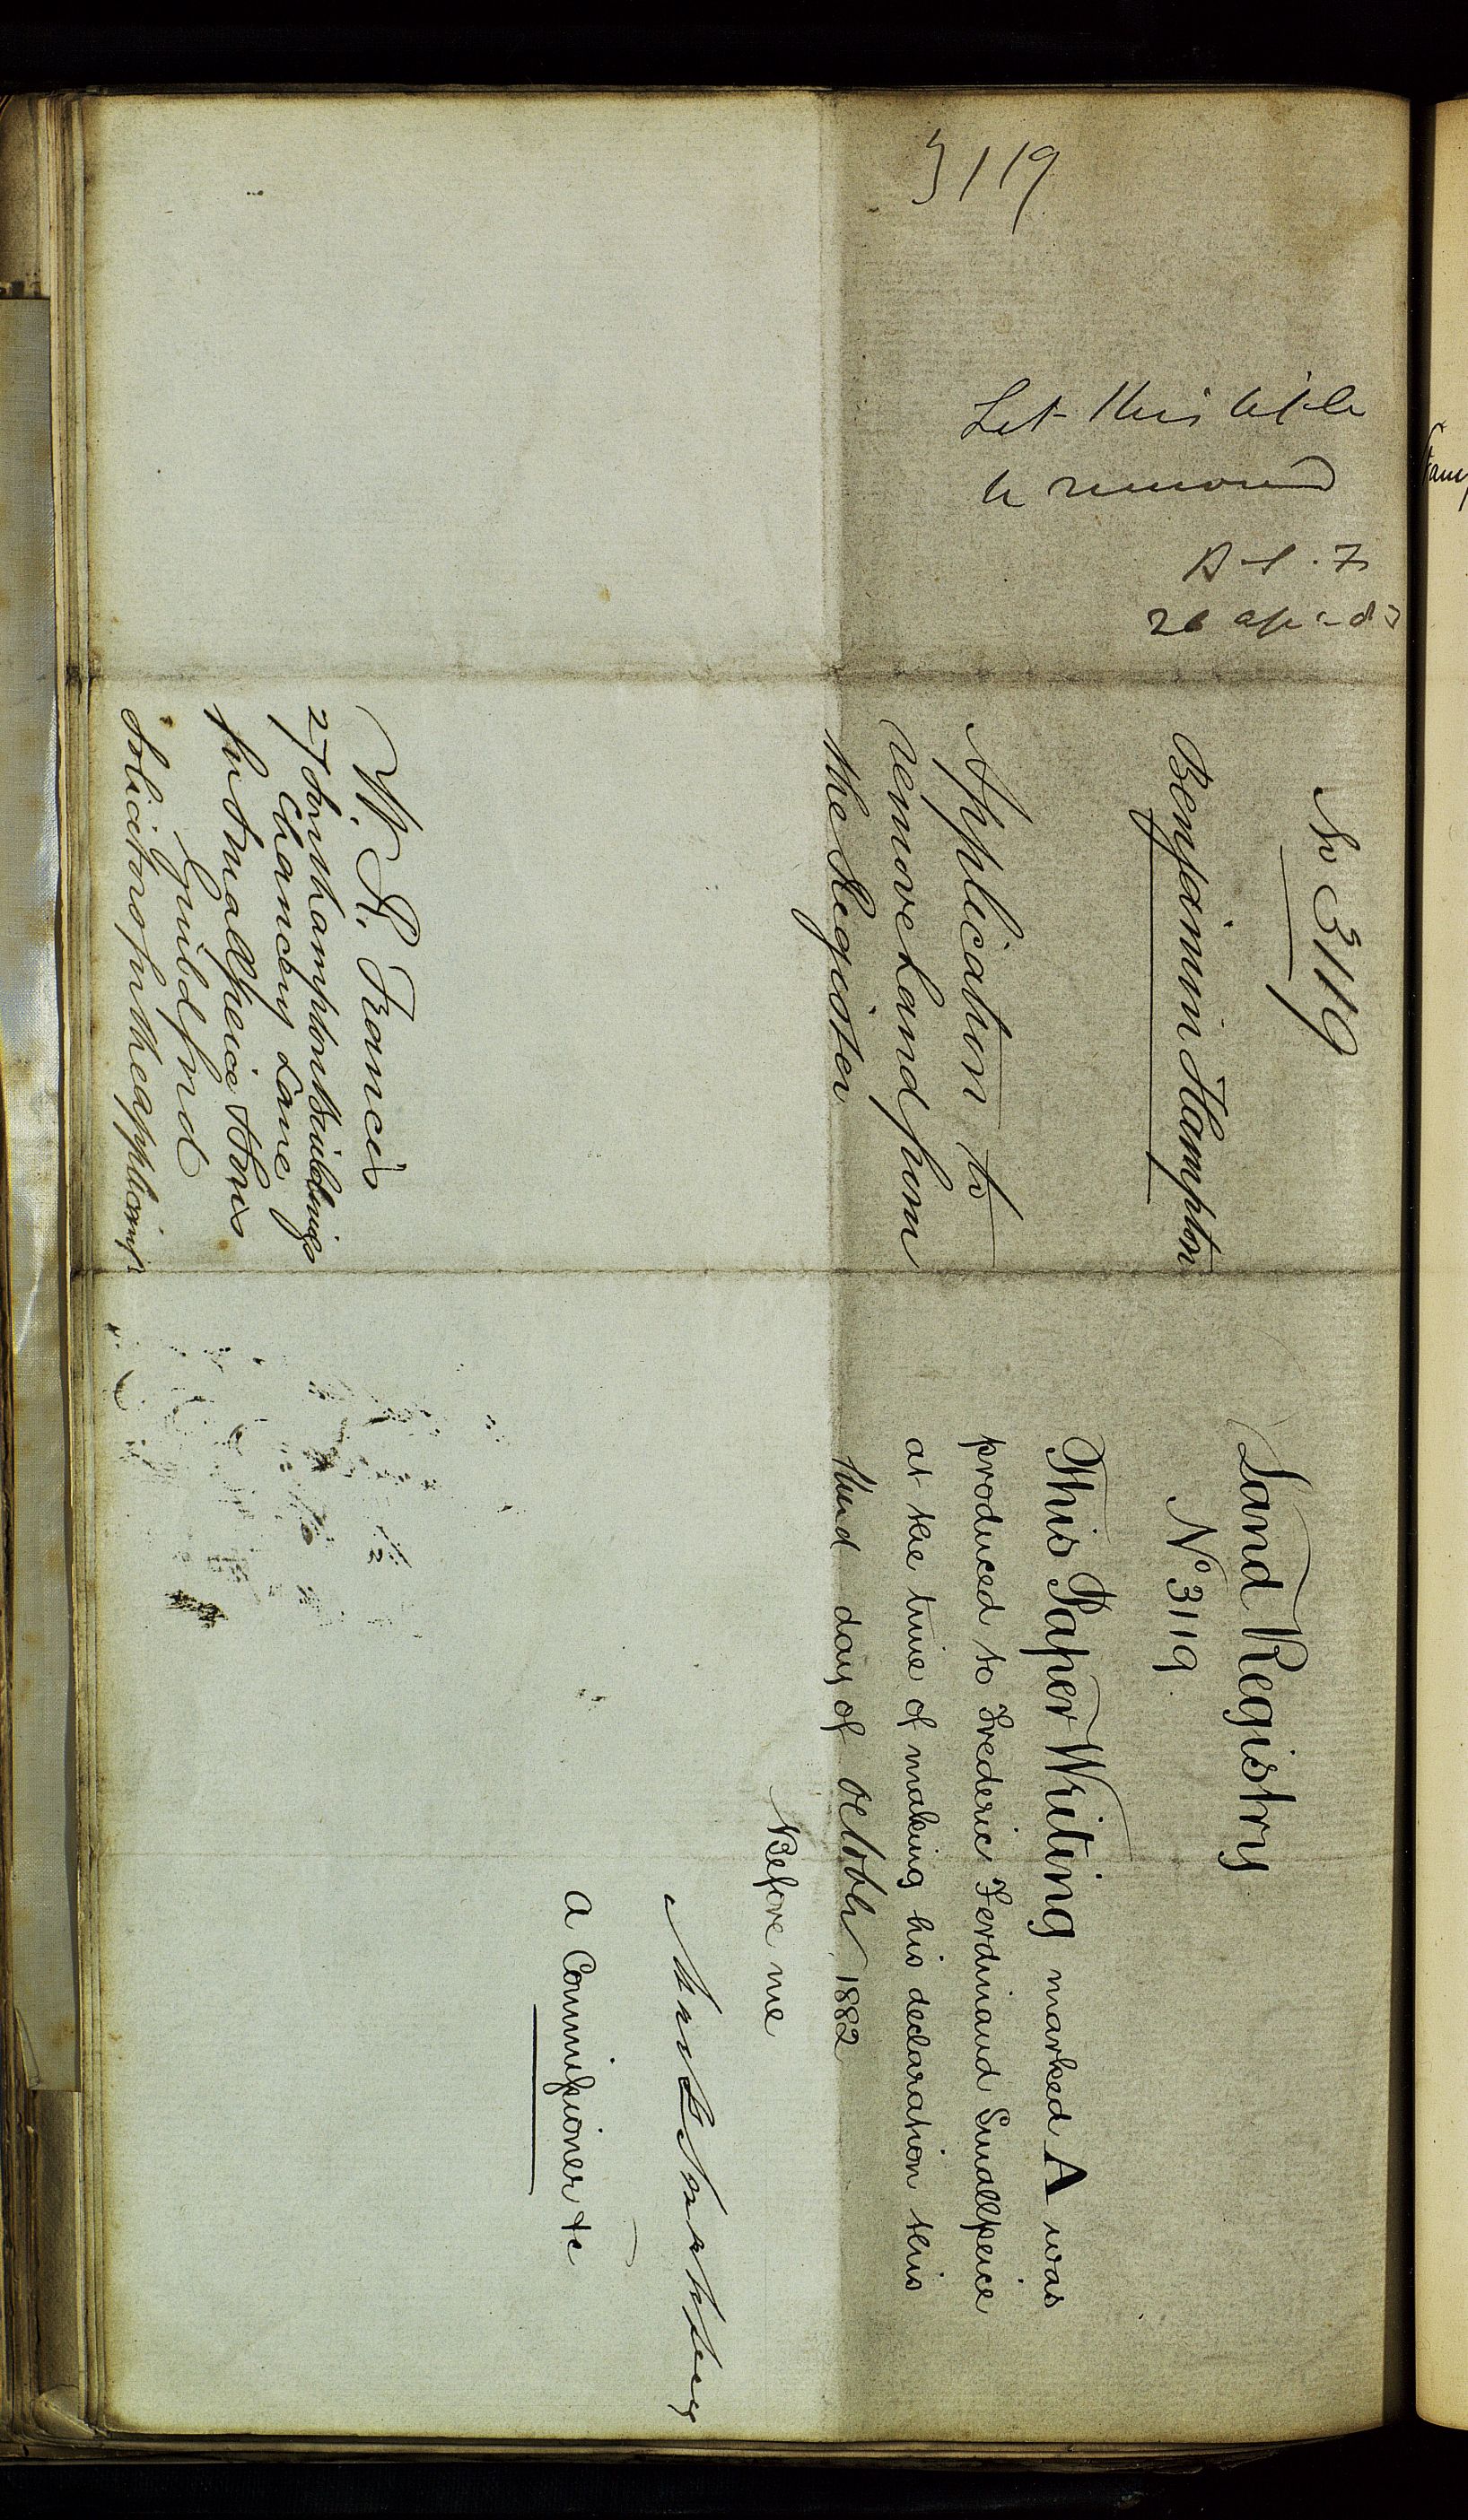 3119
Let this title
be removed
20 Ap
No 3119
Benjamin Hampton
Application to
remove Land from
the Register
W. R. Francis
27 Southampton Buildings
Chancery Lane
for Smallpeice & Sons
Guildford
Solicitors for the applicant
Land Registry
No 3119
This Paper Writing marked A was
produced to Frederic Ferdinand Smallpeice
at the time of making his declaration this
third day of October 1882
Before me
A Commissioner &c